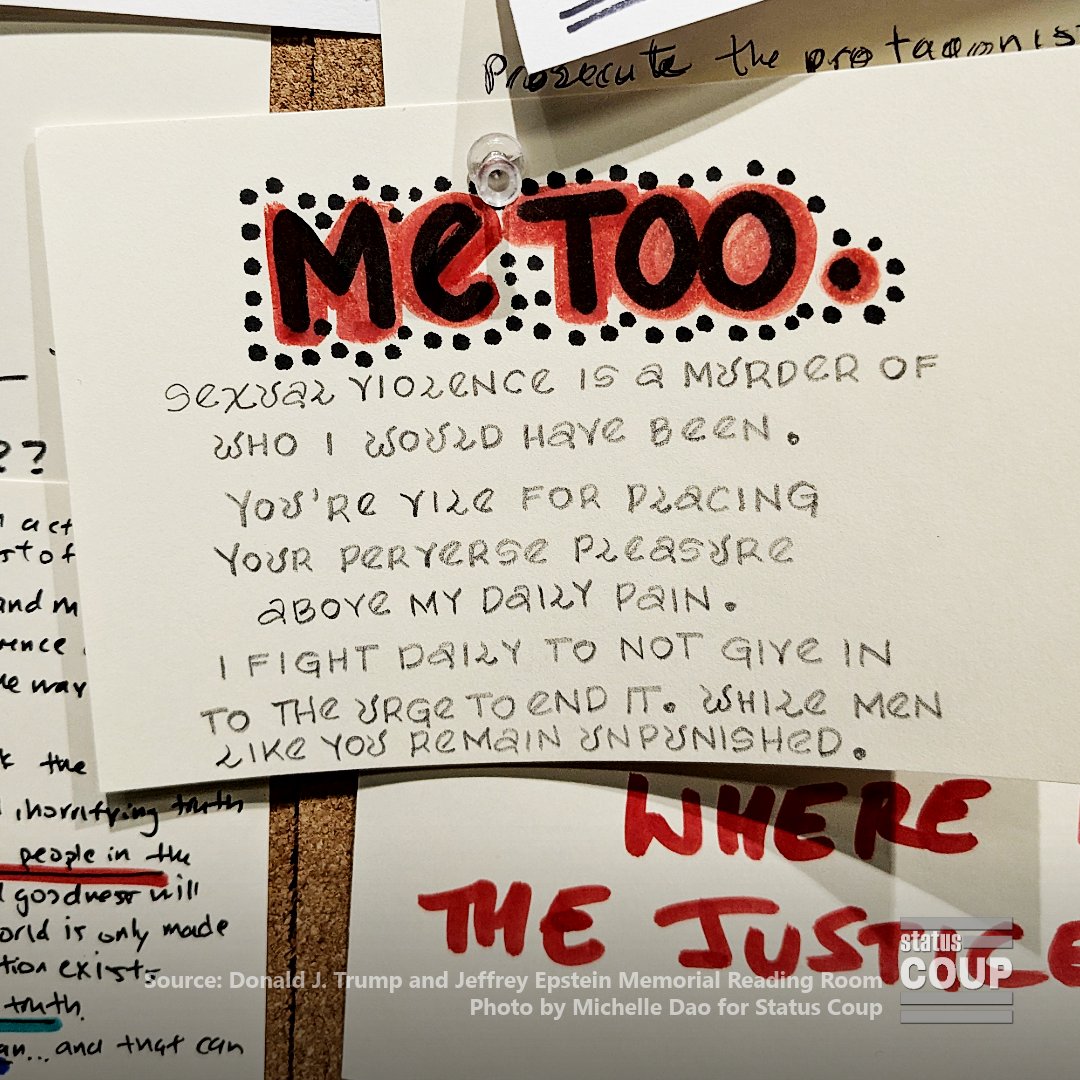 Prosecute the protagonis
Me TOO.
SEXUAL VIOLENCE IS A MURDER OF
WHO I WOULD HAVE BEEN.
YOU'RE VILE FOR PLACING
YOUR PERVERSE PLEASURE
ABOVE MY DAILY PAIN.
I FIGHT DAILY TO NOT GIVE IN
TO THE URGE TO END IT. WHILE MEN
LIKE YOU REMAIN UNPUNISHED.
??
act
st of
and m
rence
he way
the
horrifying truth
people in the
goodness will
orld is only made
tion exists
truth.
an... and that can
WHERE
THE JUSTICE
status
COUP
Source: Donald J. Trump and Jeffrey Epstein Memorial Reading Room
Photo by Michelle Dao for Status Coup